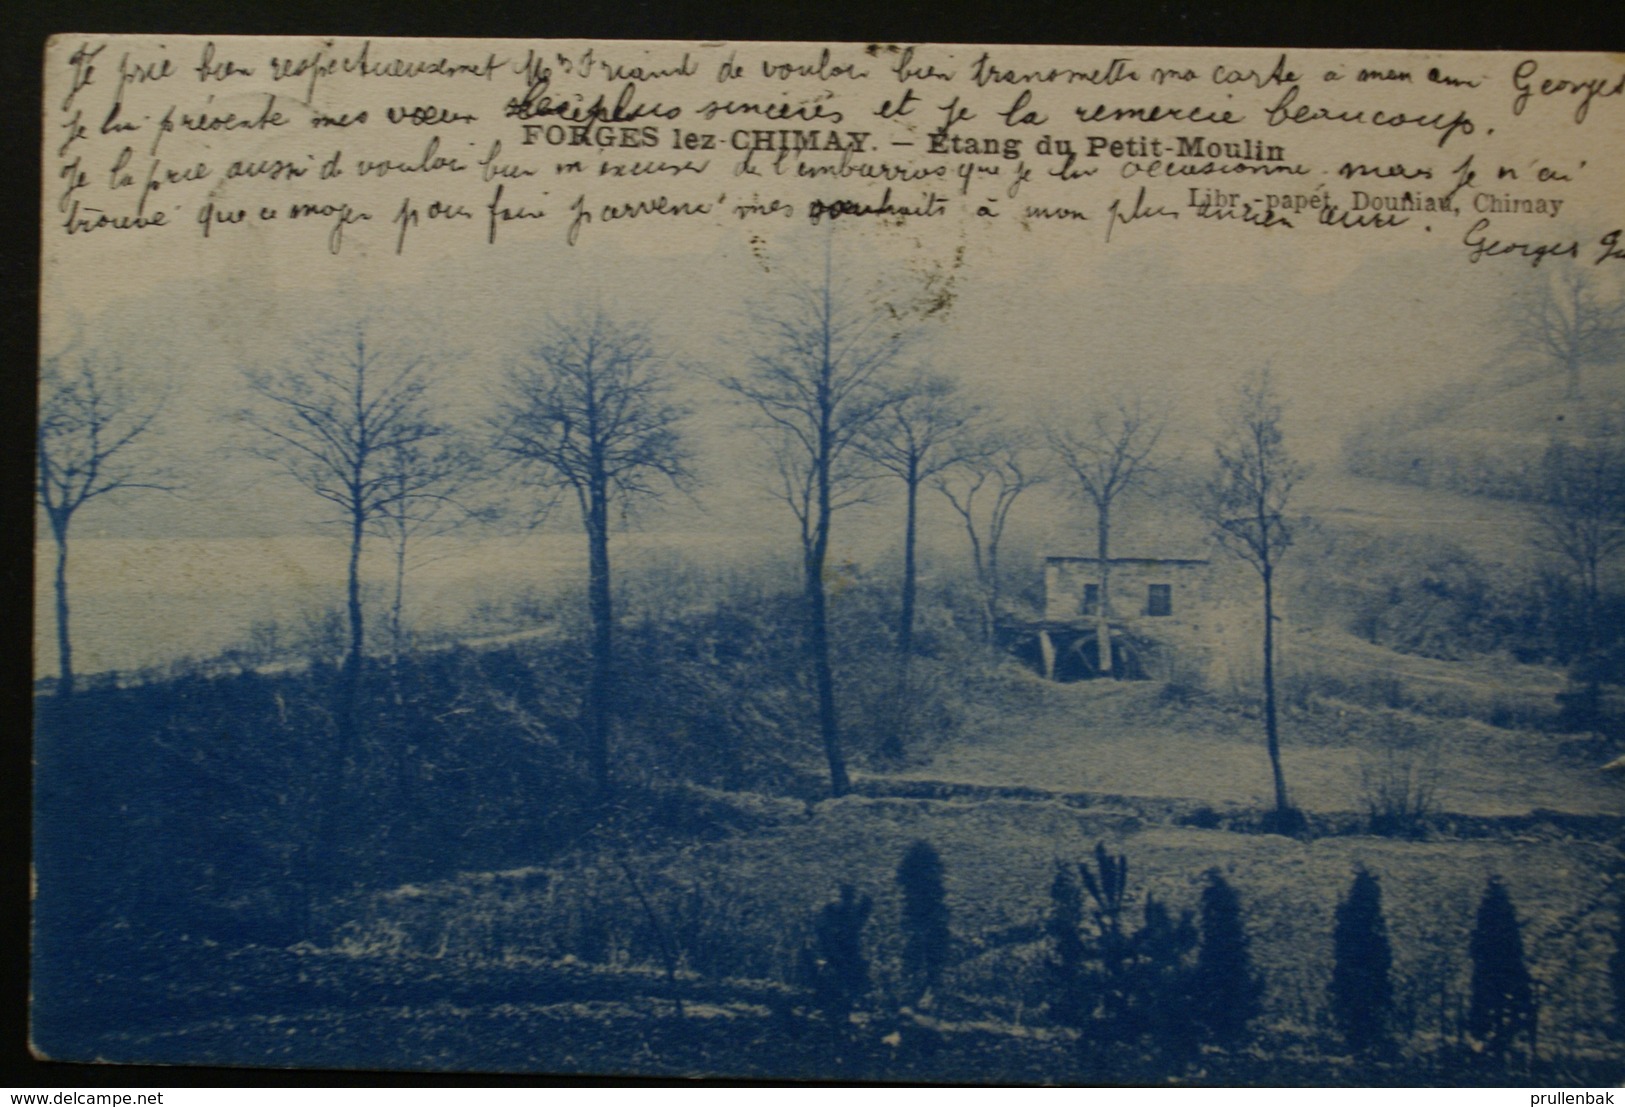 Je prie bien respectueusement Mrs Friand de vouloir bien transmettre ma carte à mon ami Georges
je lui présente mes vœux les plus sincères et je la remercie beaucoup.
FORGES lez-CHIMAY. — Étang du Petit-Moulin
Je la prie aussi de vouloir bien m'excuser de l'embarras que je lui occasionne mais je n'ai
Libr.-papet. Douniau, Chimay
trouvé que ce moyen pour faire parvenir mes souhaits à mon plus ancien ami.
Georges
prullenbak